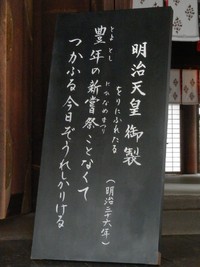 明治天皇御製
をりにふれたる
(明治三十六年)
とよとし にひなめまつり
豊年の新嘗祭ことなくて
つかふる今日ぞうれしかりける